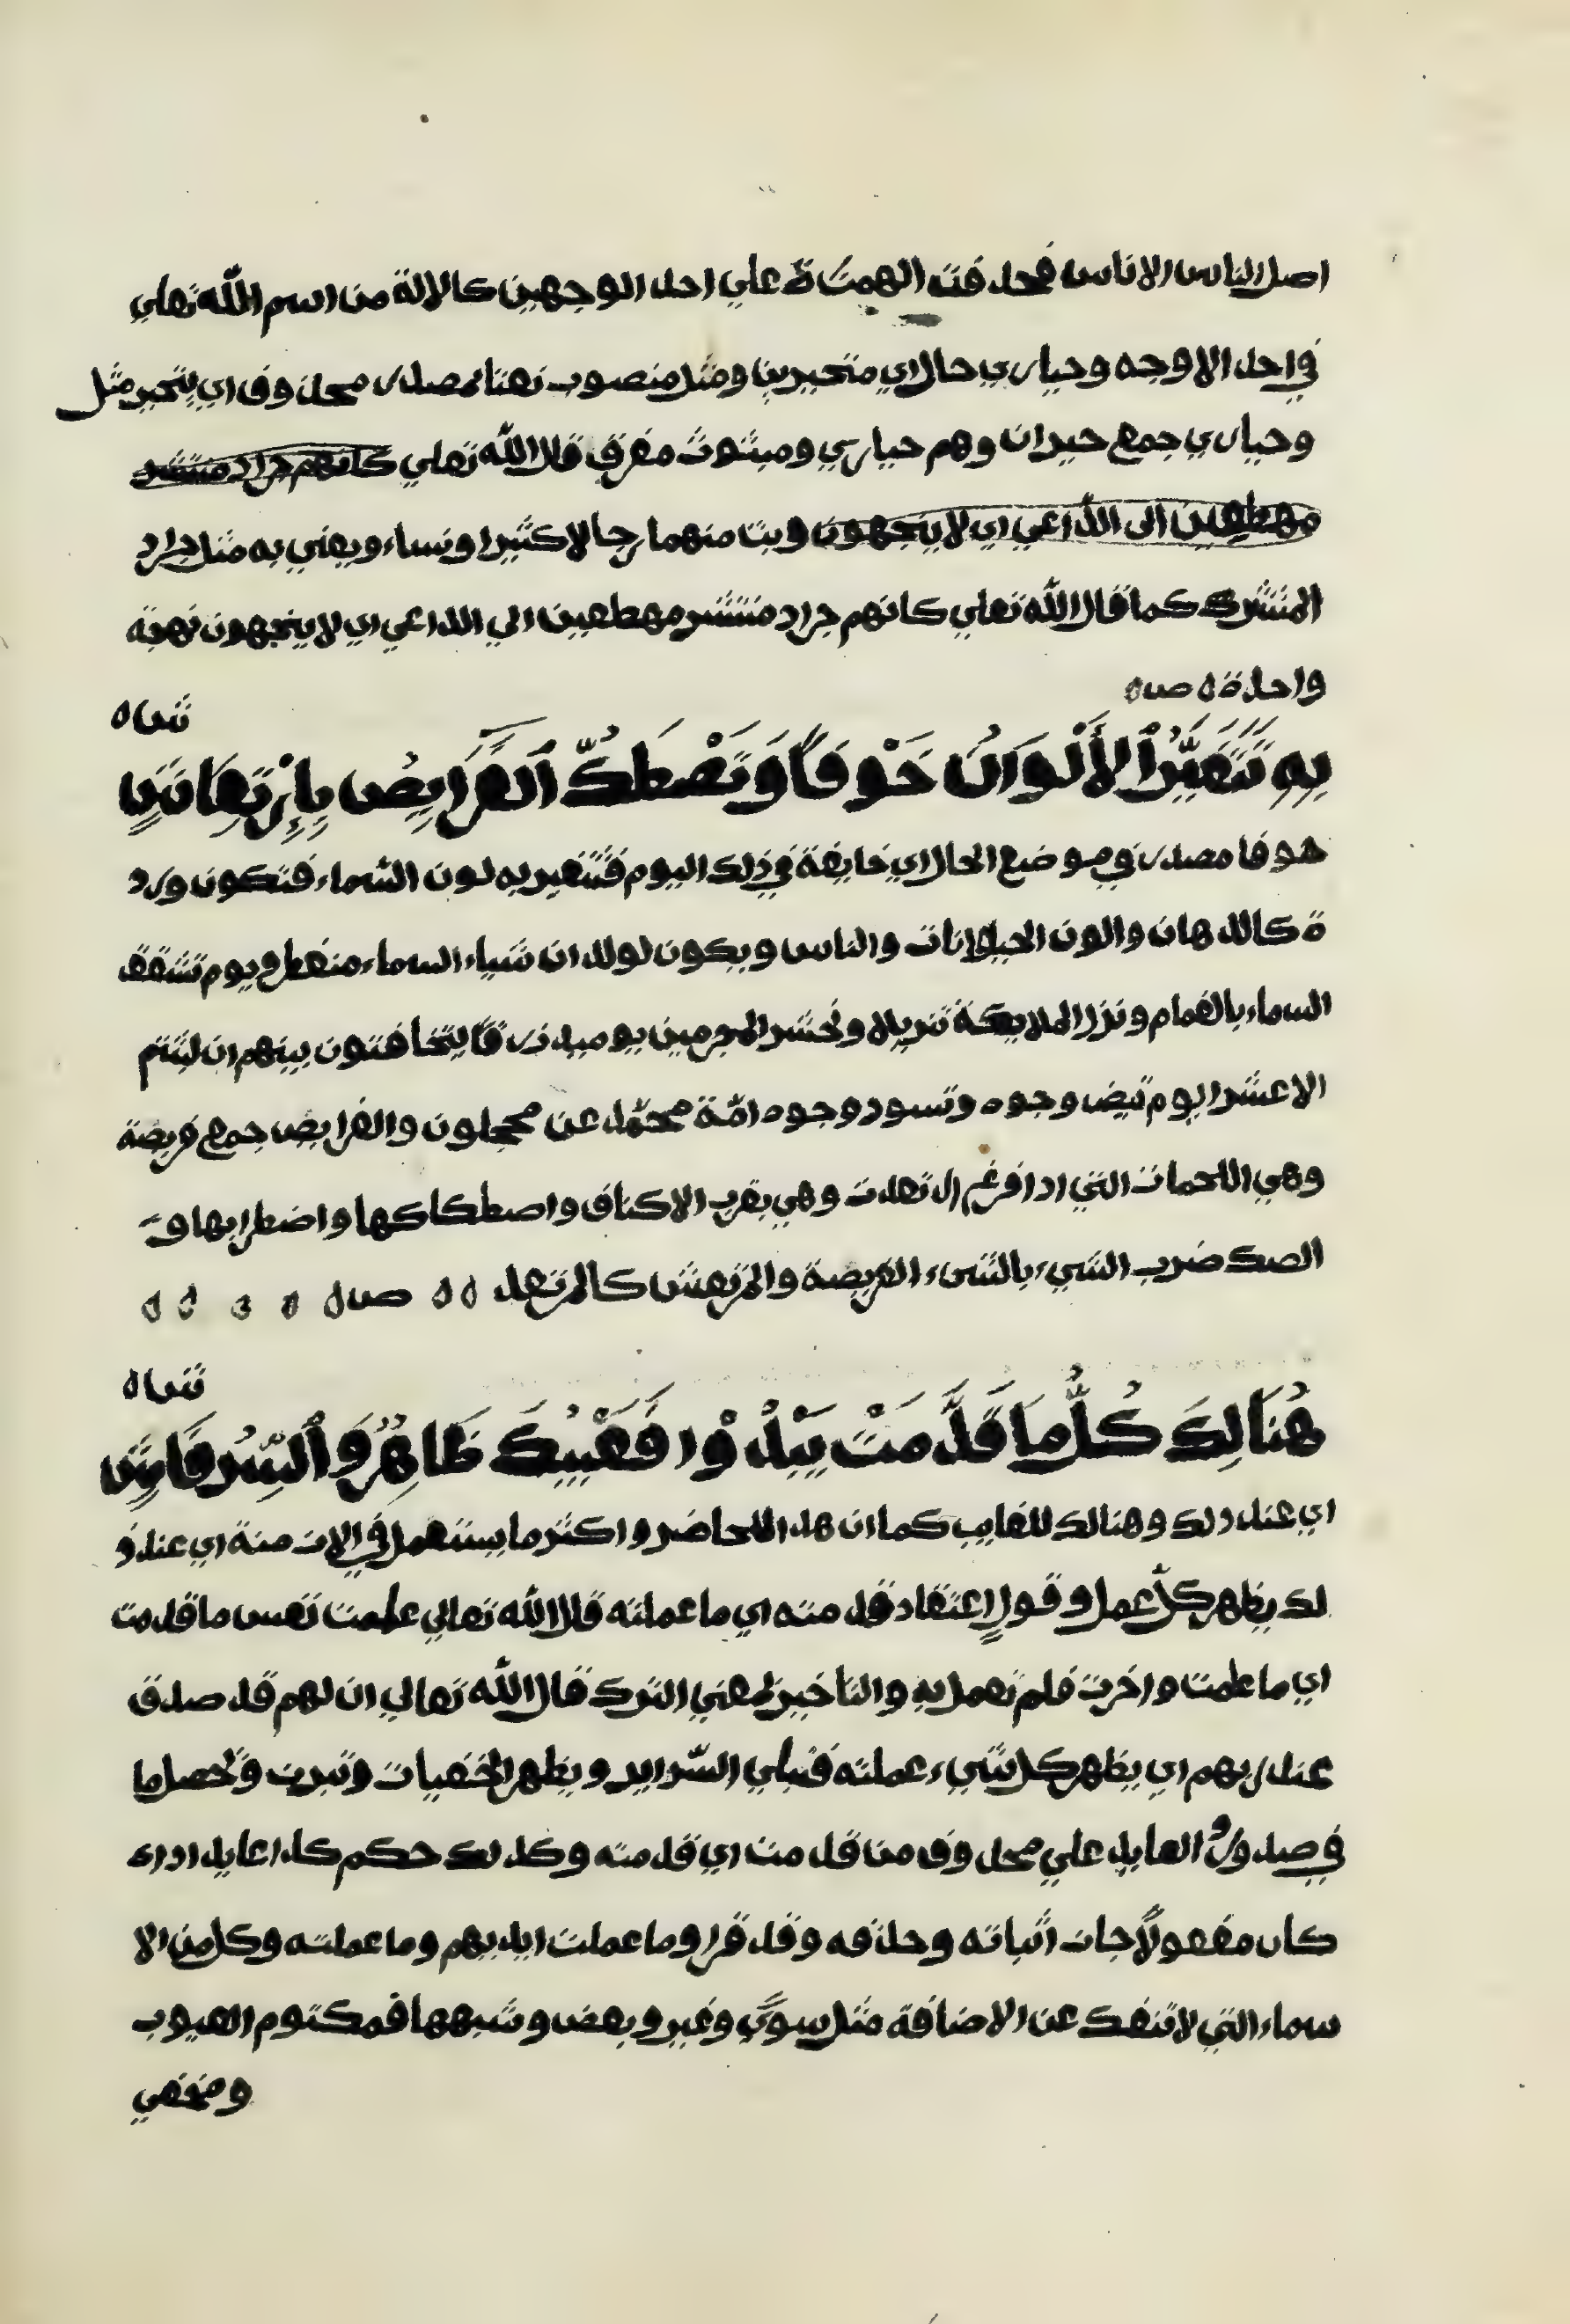 اصل الناس الاناس فحذفت الهمزة علي احد الوجهين كالالة من اسم الله تعلي
في احد الاوجه وحياري حال اي متحيرين ومثل منصوب نعتا لمصدر محذوف اي يتحير مثل
وحياري جمع حيران وهم حياري ومبثوث مفرق قال الله تعلي كانهم جراد منتشر
مهطعين الى الداعي اي لا يتجهون وبث منهما رجالا كثيرا ونساء ويعني به مثل جراد
المنتشرك كما قال الله تعلي كانهم جراد منتشر مهطعين الي الداعي اي لا يتجهون نهبة
واحدة ه ص ه
ش ه
بِهِ تَتَغَيَّرُ ٱلْأَلْوَانُ خَوْفًا وَتَصْطَكُّ ٱلْفَرَايِصُ بِإِرْتِعَاشٍ
خوفا مصدر في موضع الحال اي خايفة في ذلك اليوم فتتغير به لون السماء فتكون ورد
ة كالدهان والون الحيوانات والناس ويكون لولدان شيباء السماء منفطر ويوم تشقق
السماء بالغمام ونزل الملايكة تنزيلا ونحشر المجرمين يوميذ زرقا يتخافتون بينهم ان لبثتم
الا عشرا يوم تبيض وجوه وتسود وجوه امة محمد عن محجلون والفرايص جمع فريصة
وهي اللحمات التي اذا فزع ارتعدت وهي بقرب الاكتاف واصطكاكها واضطرابها و
الصك ضرب الشيء بالشيء الفريصة والمرتعش كالمرتعد ه ه ص ه ه ه ه ه
ش ه
هُنَالِكَ كُلُّ مَا قَدَّمَتْ يَبْدُوْا فَعَيْبُكَ ظَاهِرٌ وَٱلسِّرُ فَاشٍ
اي عند ذلك وهنالك للغايب كما ان هذا للحاضر واكثر ما يستعمل في الات منة اي عند ذ
لك يظهر كل عمل وقول اعتقاد قدمته اي ما عملته قال الله تعالي علمت نفس ما قدمت
اي ما علمت واخرت فلم تعمل به والتاخير لمعني الترك قال الله تعالي ان لهم قدم صدق
عند ربهم اي يظهر كل شيء عملته فتبلي السراير ويظهر الخفيات وتبرت وتحصل ما
في صدور العايد علي محذوف من قدمت اي قدمته وكذلك حكم كل اعايد اذا
كان مفعولا جاز اثباته وحذفه وقد قرا وما عملت ايديهم وما عملته وكل من الا
سماء التي لا تنفك عن الاضافة مثل سوي وغير وبعض وشبهها فمكتوم العيوب
ومخفي